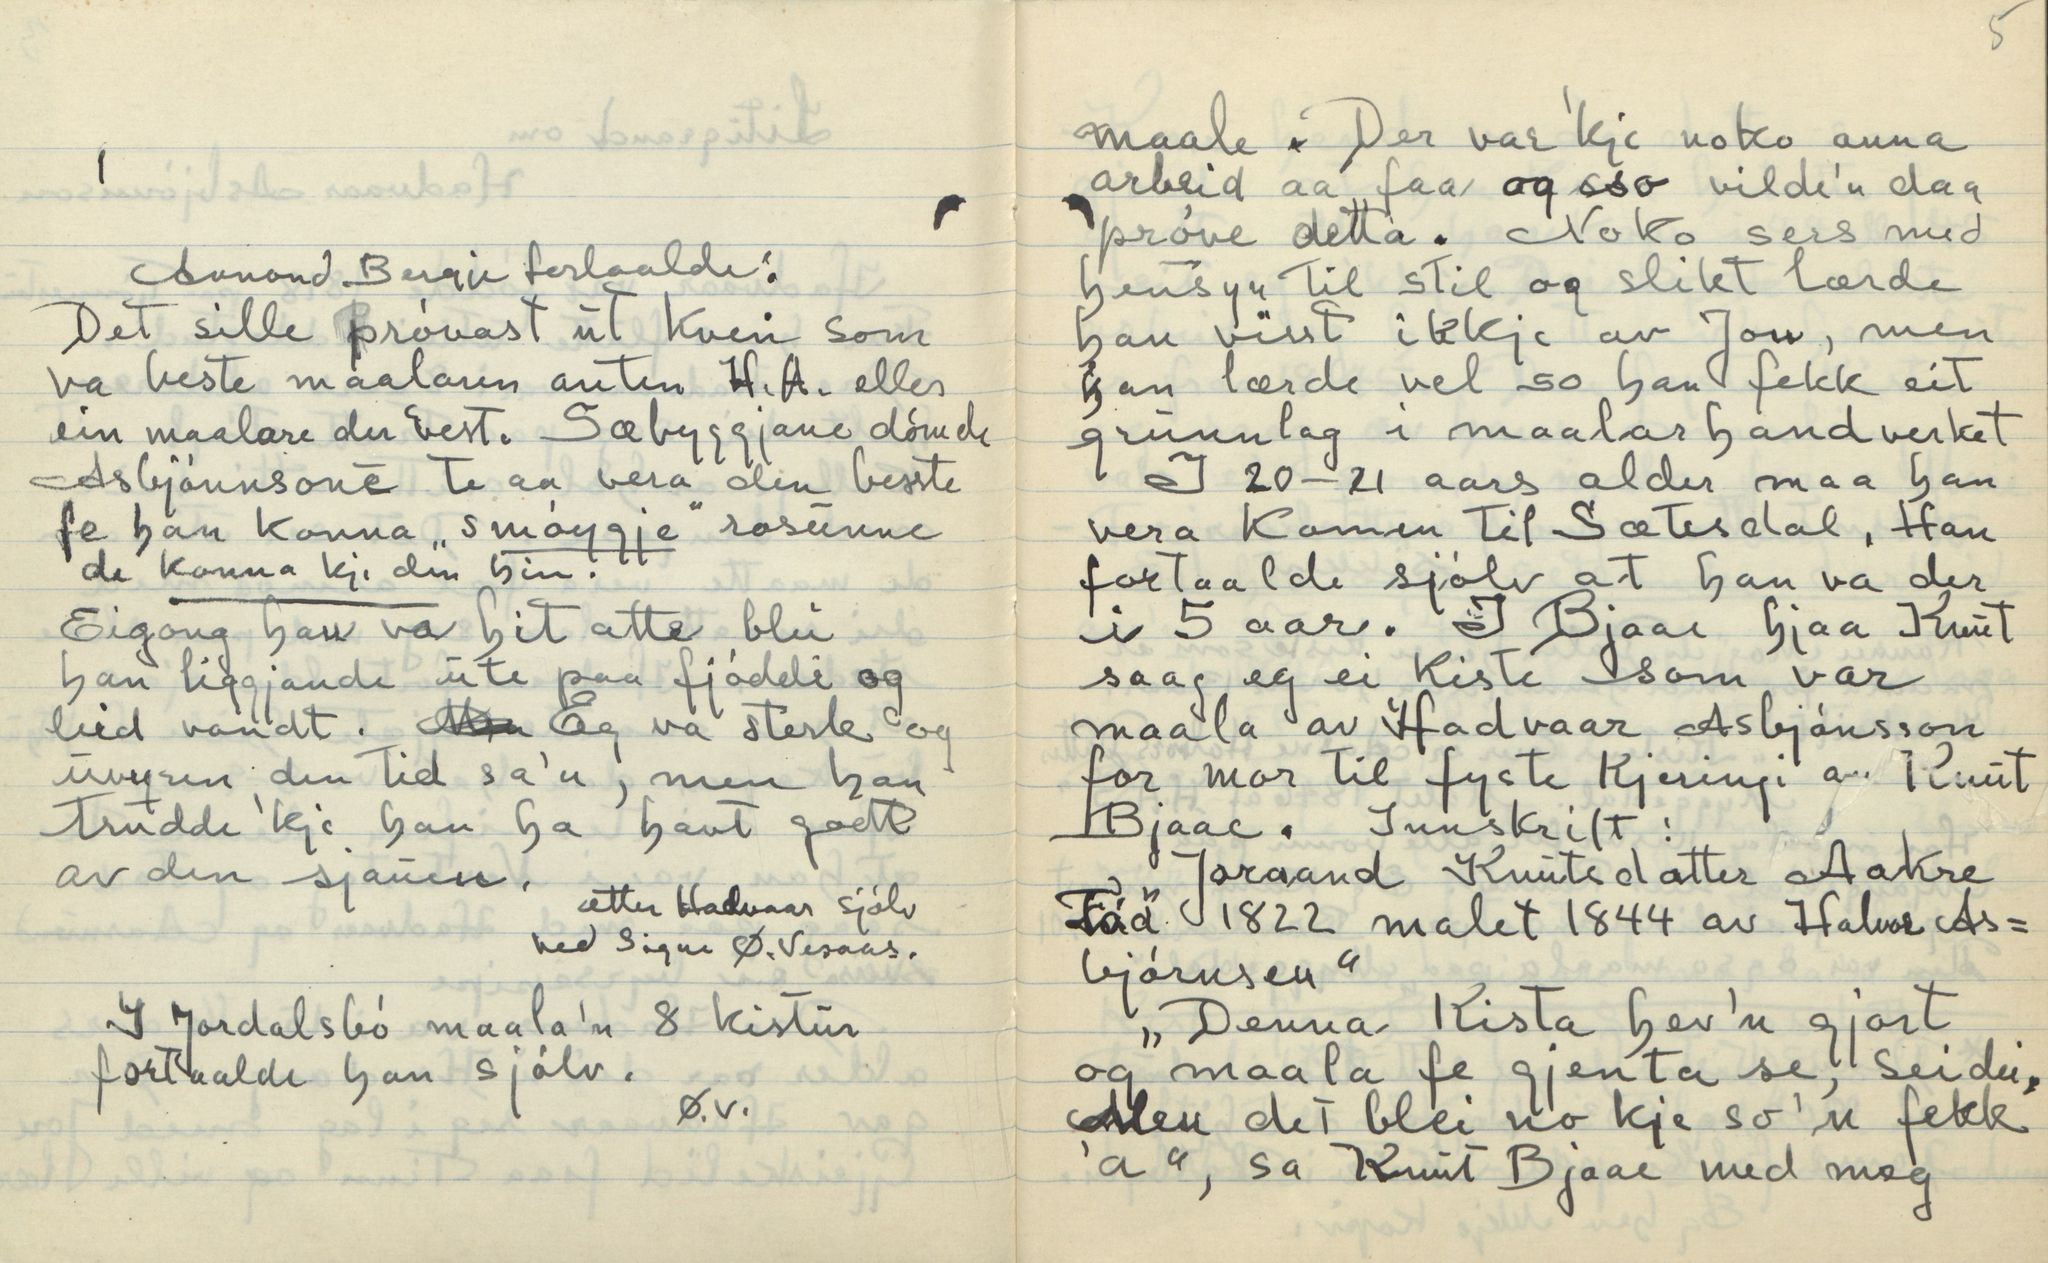 Aanond Bergje fortaalde:
Det sille próvast út kven som
va beste maalaren anten H.A. elles
ein maalare der vest. Sæbyggjane dómde
Asbjónnsone te aa vera den besste
fe han konna „smóygje" rosúnne
de konna kje den hin.
Eigong han va hit atte blei
han liggjande úte paa fjóddei og
leid vondt. Eg va sterk og
úvyren den tid sa'n, men han
trudde 'kje han ha havt godt
av den sjauen.
etter Hadvaar sjólv
ved Signe Ø. Vesaas.
I Jordalsbó maala'n 8 kistur
fortaalde han sjólv.
Ø.V.
5
maale. Der var 'kje noko anna
arbeid aa faa og sso vilde'n daa
próve detta. Noko sers med
hensyn til stil og slikt lærde
han visst ikkje av Jon, men
han lærde vel so han fekk eit
grúnnlag i maalarhandverket
I 20–21 aars alder maa han
vera komen til Sætesdal. Han
fortaalde sjólv at han va der
i 5 aar. I Bjaae hjaa Knút
saag eg ei kiste som var
maala av Hadvaar Asbjónsson
for mor til fyste kjeringi a Knút
Bjaae. Innskrift:
„Joraand Knútsdatter Aakre
Fód 1822 malet 1844 av Halvor As=
bjórnsen"
„Denna kista hev'n gjort
og maala fe gjenta se, seidei.
Men det blei no kje so'n fekk
'a", sa Knút Bjaae med meg